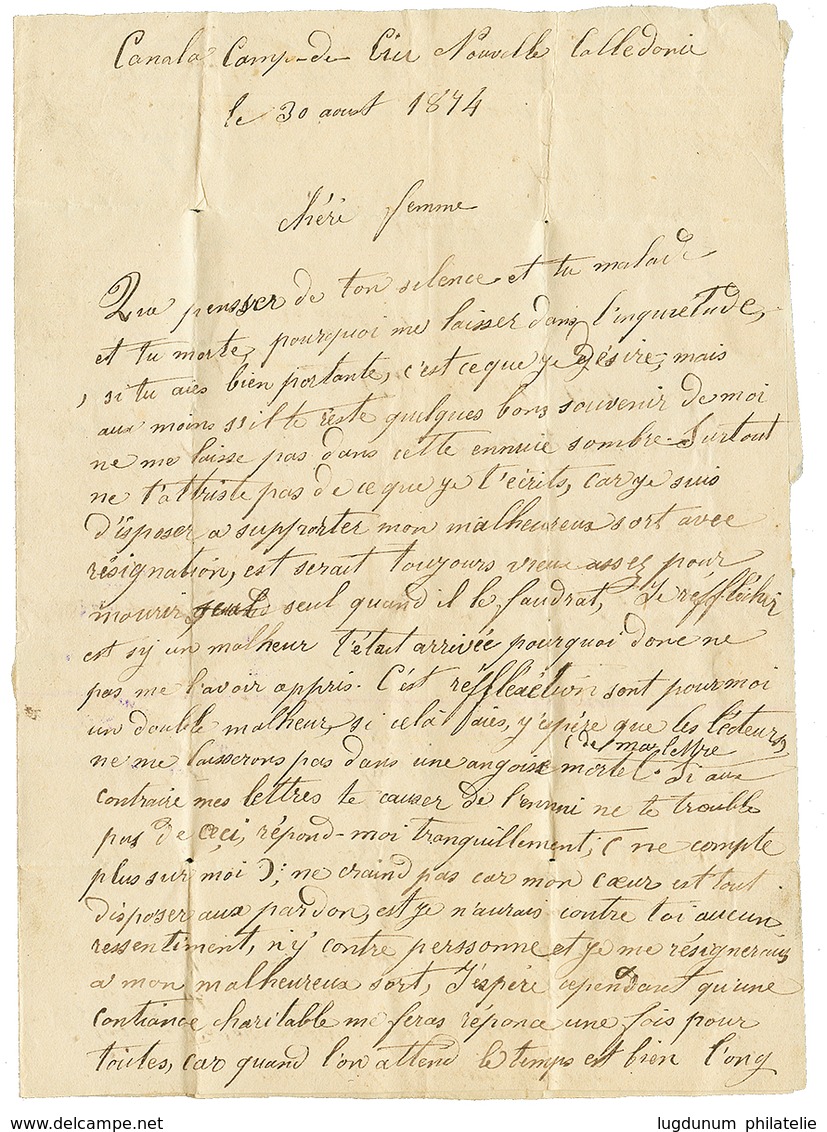 Canala Camp-de Nouvelle Calledonie
le 30 aoust 1874
chéri femme
Que pensser de ton silence et tu malade
et tu morte, pourquoi me laisser dans l'inquiétude,
, si tu aies bien portante, c'est ce que ye désire, mais
aux moins s'il te reste quelques bons souvenir de moi
ne me laisse pas dans cette ennuie sombre. Surtout
ne t'attriste pas de ce que ye t'écrits, car ye suis
disposer a supporter mon malheureux sort avec
résignation, est serait touyours vieux assez pour
mourir seul quand il le faudrat, Je réffléchir
est sy un malheur t'était arrivée pourquoi donc ne
pas me l'avoir appris. C'est réffleæction sont pour moi
un double malheur, si celà s'aies, y'espère que les lècteurs
(de ma lettre)
ne me laisserons pas dans une angoise mortel. Si aux
contraire mes lettres te causer de l'ennui ne te trouble
pas de ceçi, répond-moi tranquillement, ( ne compte
plus sur moi ); ne craind pas car mon cœur est tout
disposer aux pardon, est ye n'aurais contre toi aucun
ressentiment, n'y contre perssonne et ye me résignerais
a mon malheureux sort, J'espére cependant qu'une
contiance charitable me feras réponce une fois pour
toutes, car quand l'on attend le temps est bien l'ong
lugdunum philatelie
delcampe.net